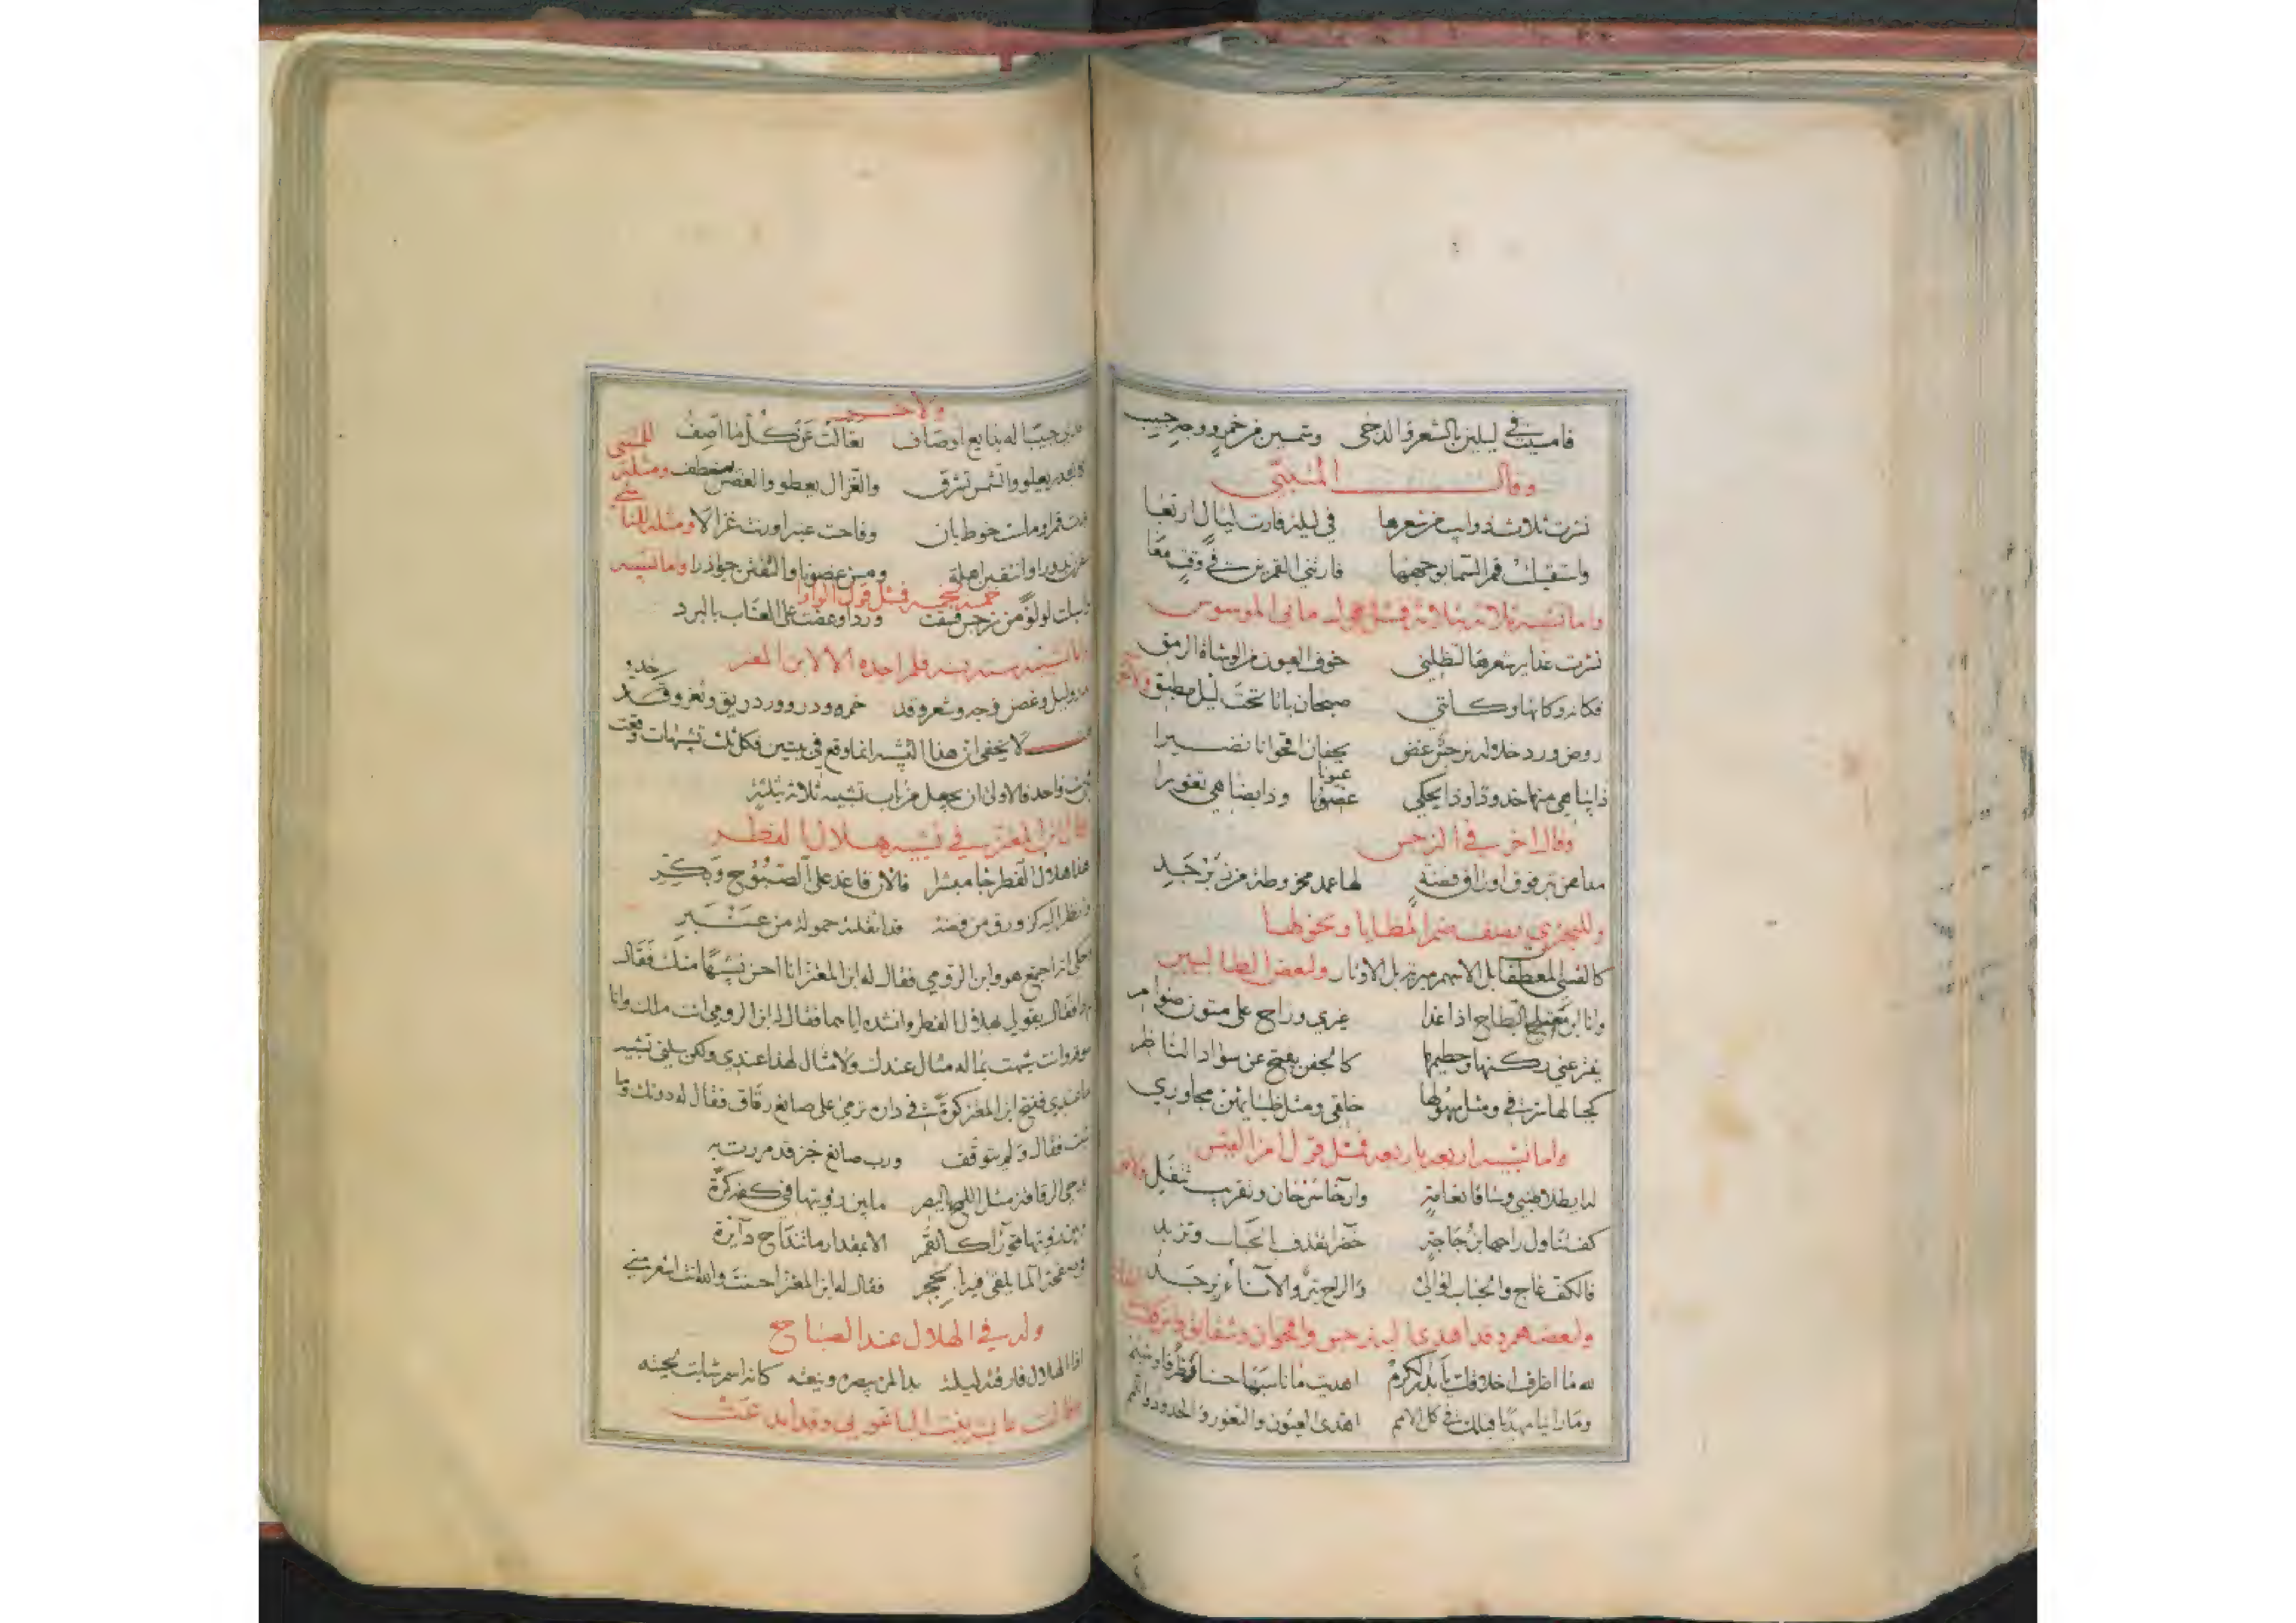 فامسيت في ليلين بالشعر والدجى وشمسين من خمر ووجه حبيب
وقال المتنبي
نشرت ثلاث ذوايب من شعرها في ليلة فارت ليالي اربعا
واستقبلت قمر السما بوجهها فارتني القمرين في وقت معا
واما تشبيه ثلاثة بثلاثة فمثل قول ماني الموسوس
نشرت غداير شعرها لتظلني خوف العيون من الوشاة الرمق
فكانه وكانها وكانني صبحان باتا تحت ليل مطبق ولاخر
روض ورد خلاله نرجس غض يحفان اقحوانا نضيرا
ذا يباهي منها خدودا وذا يحكي عيونا وذا يضاهي ثغورا
وقال اخر في النرجس
مداهن تبر فوق اوراق فضة لها عمد مخروطة من زبرجد
وللبحتري يصف ضمر المطايا ونحولها
كالقسي المعطفات بل الاسهم مبرية بل الاوتار ولبعض الطالبيين
وانا ابن معتلج البطاح اذا غدا غيري وراح على متون ضوامر
يفتر عني ركنها وحطيمها كالجفن يفتح عن سواد الناظر
كجبالها شرفي ومثل سهولها خلقي ومثل ظبائهن مجاوري
واما تشبيه اربعة باربعة فمثل قول امرء القيس
له ايطلا ظبي وساقا نعامة وارخا سرحان وتقريب تتفل ولاخر
كف تناول راحها بزجاجة خضرا تقذف بالحباب وتزبد
فالكف عاج والحباب لؤالئ والراح تبر والاناء زبرجد
ولبعضهم وقد اهدى اليه نرجس واقحوان وشقائق
لله ما اظرف اخلاقك يا بدر الكرم اهديت ما ناسبها حسنا وظرفا وشيم
وما راينا مهديا قبلك في كل الامم اهدى العيون والثغور والخدود واللمم
ولاخر
حبيبا له بدايع اوصاف تعالت عن كل ما اصف للمتنبي
كالبدر يعلو والشمس تشرق والغزال يعطو والغصن منعطف ومثله
بدت قمرا ومالت خوط بان وفاحت عنبرا ورنت غزالا ومثله
سفرن بدورا وانتقبن اهلة ومسن غصونا والتفتن جواذرا واما تشبيه
خمسة بخمسة فمثل قول الواوا
واسبلت لؤلؤا من نرجس فسقت وردا وعضت على العناب بالبرد
واما تشبيه ستة بستة فلم اجده الا لابن المعتز
بدر وليل وغصن وجه وشعر وقد خمر ودر وورد ريق وثغر وخد
لا يخفى ان هذا التشبيه انما وقع في بيتين فكل ثلث تشبيهات وقعت
في بيت واحد فالاولى ان يجعل من باب تشبيه ثلاثة بثلثة
قال ابن المعتز في تشبيه هلال الفطر
هذا هلال الفطر جا مبشرا فالان فاغد على الصبوح وبكر
وانظر اليه كزورق من فضة قد اثقلته حمولة من عنبر
يحكى انه اجتمع هو وابن الرومي فقال له ابن المعتز انا احسن تشبيها منك فقال
فقال بقولي هلال الفطر وانشده اياهما فقال له ابن الرومي انت ملك وانا
سوقة وانت شبهت بما له مثال عندك ولا مثال لهذا عندي ولكن
ما عندي ففتح ابن المعتز كوة في داره ترمي على صانع رقاق فقال له دونك وما
شئت فقال ولم يتوقف ورب صانع خبز قد مررت به
يدحى الرقاقة مثل اللمح بالبصر ما بين رؤيتها في كفه كرة
وبين رؤيتها قورا كالقمر الا بمقدار ما تنداح دائرة
في صفحة الما يلقى فيه بالحجر فقال له ابن المعتز احسنت والله انت اشعر مني
وله في الهلال عند الصباح
اذا الهلال فارقته ليلته بدا لمن يبصره وينعته كانه اسمر شابت لحيته